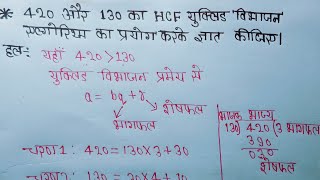 * 420 और 130 का HCF युक्लिड विभाजन
एल्गोरिथ्म का प्रयोग करके ज्ञात कीजिए।
हल:- यहाँ 420 > 130
युक्लिड विभाजन प्रमेय से
a = bq + r
शेषफल
भागफल
चरण 1: 420 = 130×3 + 30
भाजक भाज्य
130) 420 (3 भागफल
390
030
शेषफल
130 = 30×4 + 10